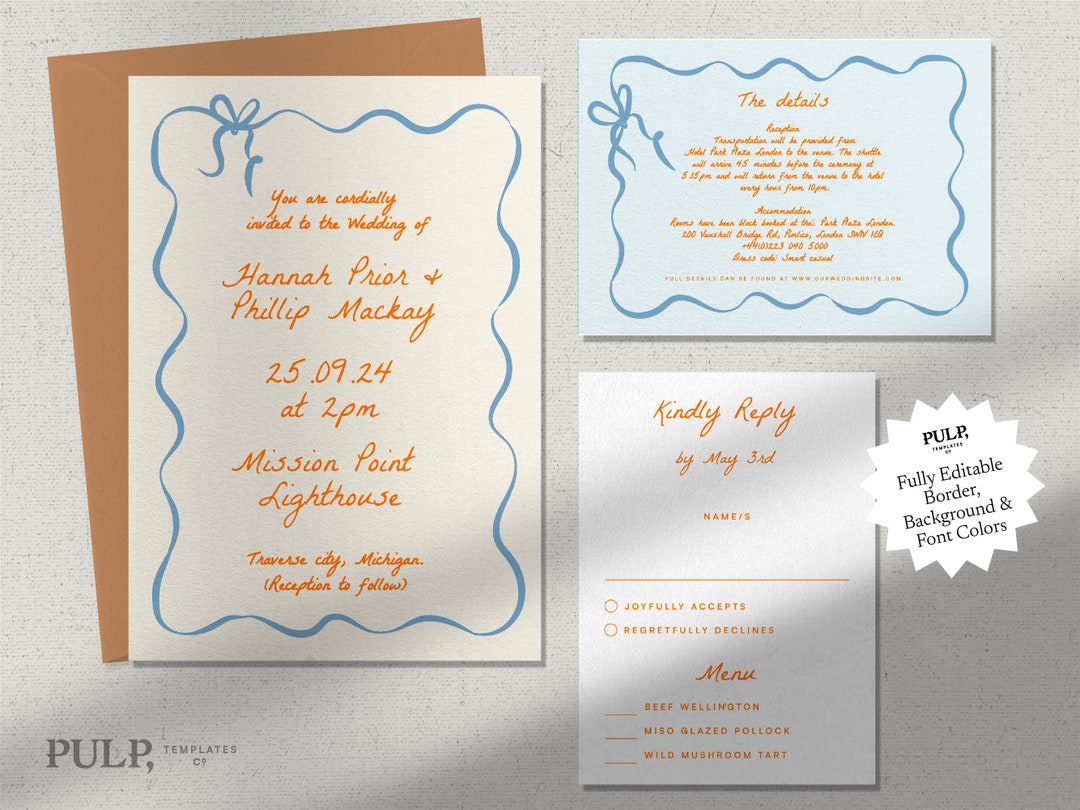 You are cordially
invited to the Wedding of
Hannah Prior &
Phillip Mackay
25.09.24
at 2pm
Mission Point
Lighthouse
Traverse city, Michigan.
(Reception to follow)
The details
Reception
Transportation will be provided from
Hotel Park Plaza London to the venue. The shuttle
will arrive 45 minutes before the ceremony at
5.15pm and will return from the venue to the hotel
every hour from 10pm.
Accommodation
Rooms have been block booked at the: Park Plaza London.
200 Vauxhall Bridge Rd, Pimlico, London SW1V 1EQ
+44(0)223 040 5000
Dress code: Smart casual
FULL DETAILS CAN BE FOUND AT WWW.OURWEDDINGSITE.COM
Kindly Reply
by May 3rd
NAME/S
JOYFULLY ACCEPTS
REGRETFULLY DECLINES
Menu
BEEF WELLINGTON
MISO GLAZED POLLOCK
WILD MUSHROOM TART
PULP,
TEMPLATES
CO
Fully Editable
Border,
Background &
Font Colors
PULP,
TEMPLATES
CO